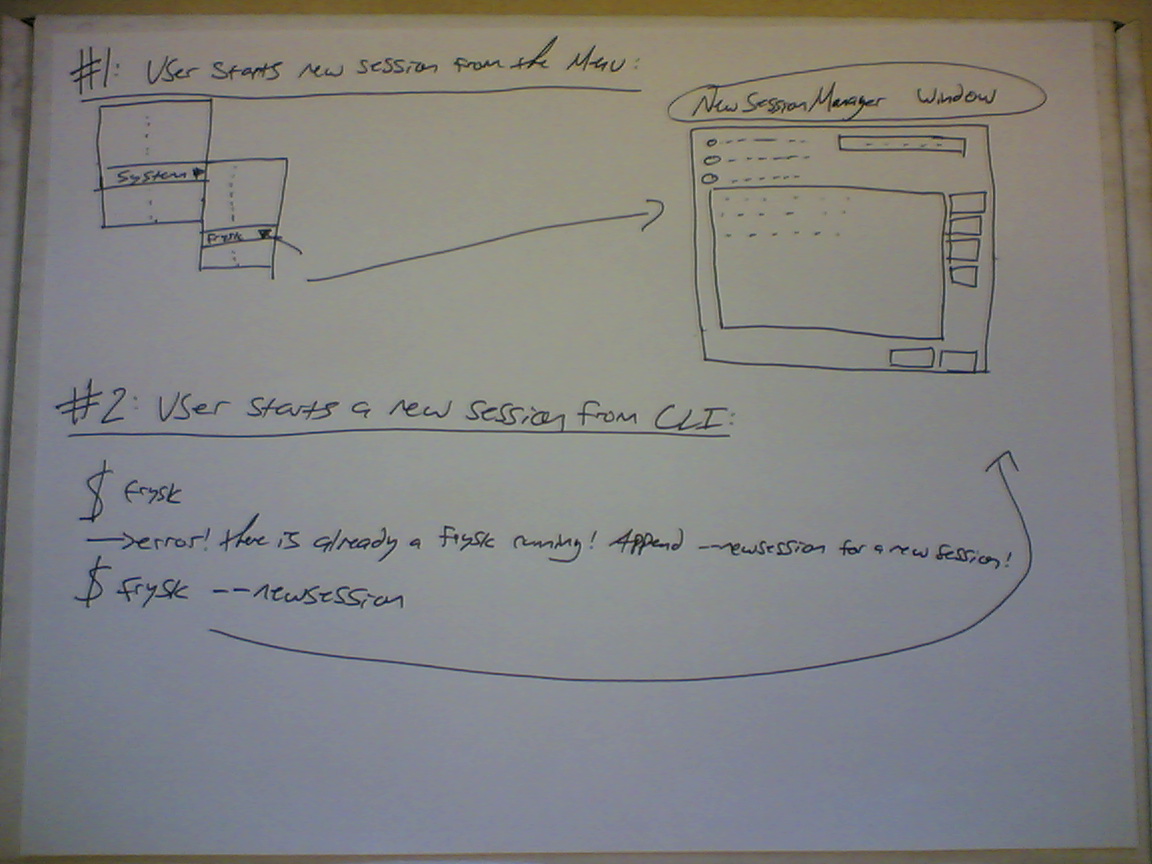 #1: User starts new session from the Menu:
New Session Manager Window
System
Frysk
#2: User starts a new session from CLI:
$ frysk
→error! there is already a frysk running! Append --newsession for a new session!
$ frysk --newsession